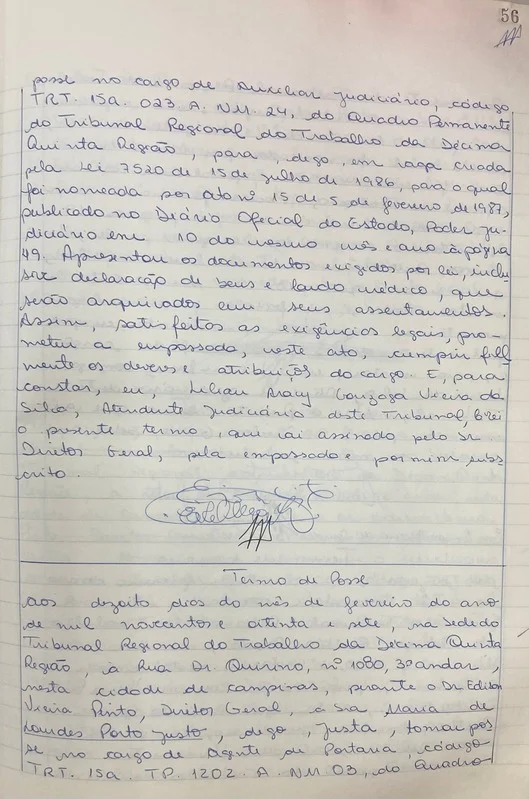 56
posse no cargo de Auxiliar Judiciário, código
TRT. 15a. 023. A. NM. 24, do Quadro Permanente
do Tribunal Regional do Trabalho da Décima
Quinta Região, para, digo, em vaga criada
pela Lei 7520 de 15 de julho de 1986, para o qual
foi nomeada por ato nº 15 de 5 de fevereiro de 1987,
publicado no Diário Oficial do Estado, Poder Ju-
diciário em 10 do mesmo mês e ano à página
49. Apresentou os documentos exigidos por lei, inclu
sive declaração de bens e laudo médico, que
serão arquivados em seus assentamentos.
Assim, satisfeitos as exigências legais, pro-
meteu a empossada, neste ato, cumprir fiel
mente os deveres e atribuições do cargo. E, para
constar, eu, Lilian Aracy Gonzaga Vieira da
Silva, Atendente Judiciário deste Tribunal, lavrei
o presente termo, que vai assinado pelo Sr
Diretor Geral, pela empossada e por mim subs
crito.
Termo de Posse
Aos dezoito dias do mês de fevereiro do ano
de mil novecentos e oitenta e sete, na sede do
Tribunal Regional do Trabalho da Décima Quinta
Região, à Rua Dr. Quirino, nº 1080, 3º andar,
nesta cidade de Campinas, perante o Dr. Edison
Vieira Pinto, Diretor Geral, a Sra Maria de
Lourdes Porto Justo, digo, Justa, tomou pos
se no cargo de Agente de Portaria, código
TRT. 15a. TP. 1202. A. NM 03, do Quadro